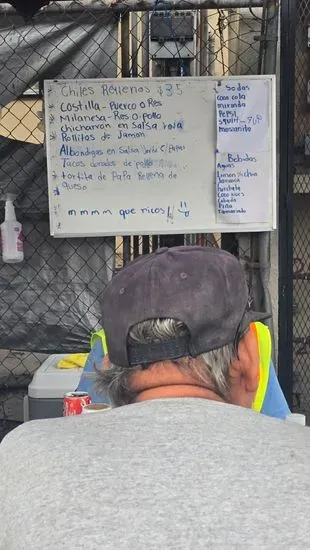 Chiles Rellenos $35
Costilla - Puerco o Res
Milanesa - Res o pollo
chicharron en Salsa roja
Rollitos de Jamon
Albondigas en Salsa
Tacos dorados de pollo
tortita de PaPa Rellena de
queso
mmmm que ricos!!
Sodas
coca cola
miranda
Pepsi
squirt - 7UP
manzanita
Bebidas
Aguas
Limon
Jamaica
Horchata
Coco
Cebada
Piña
Tamarindo